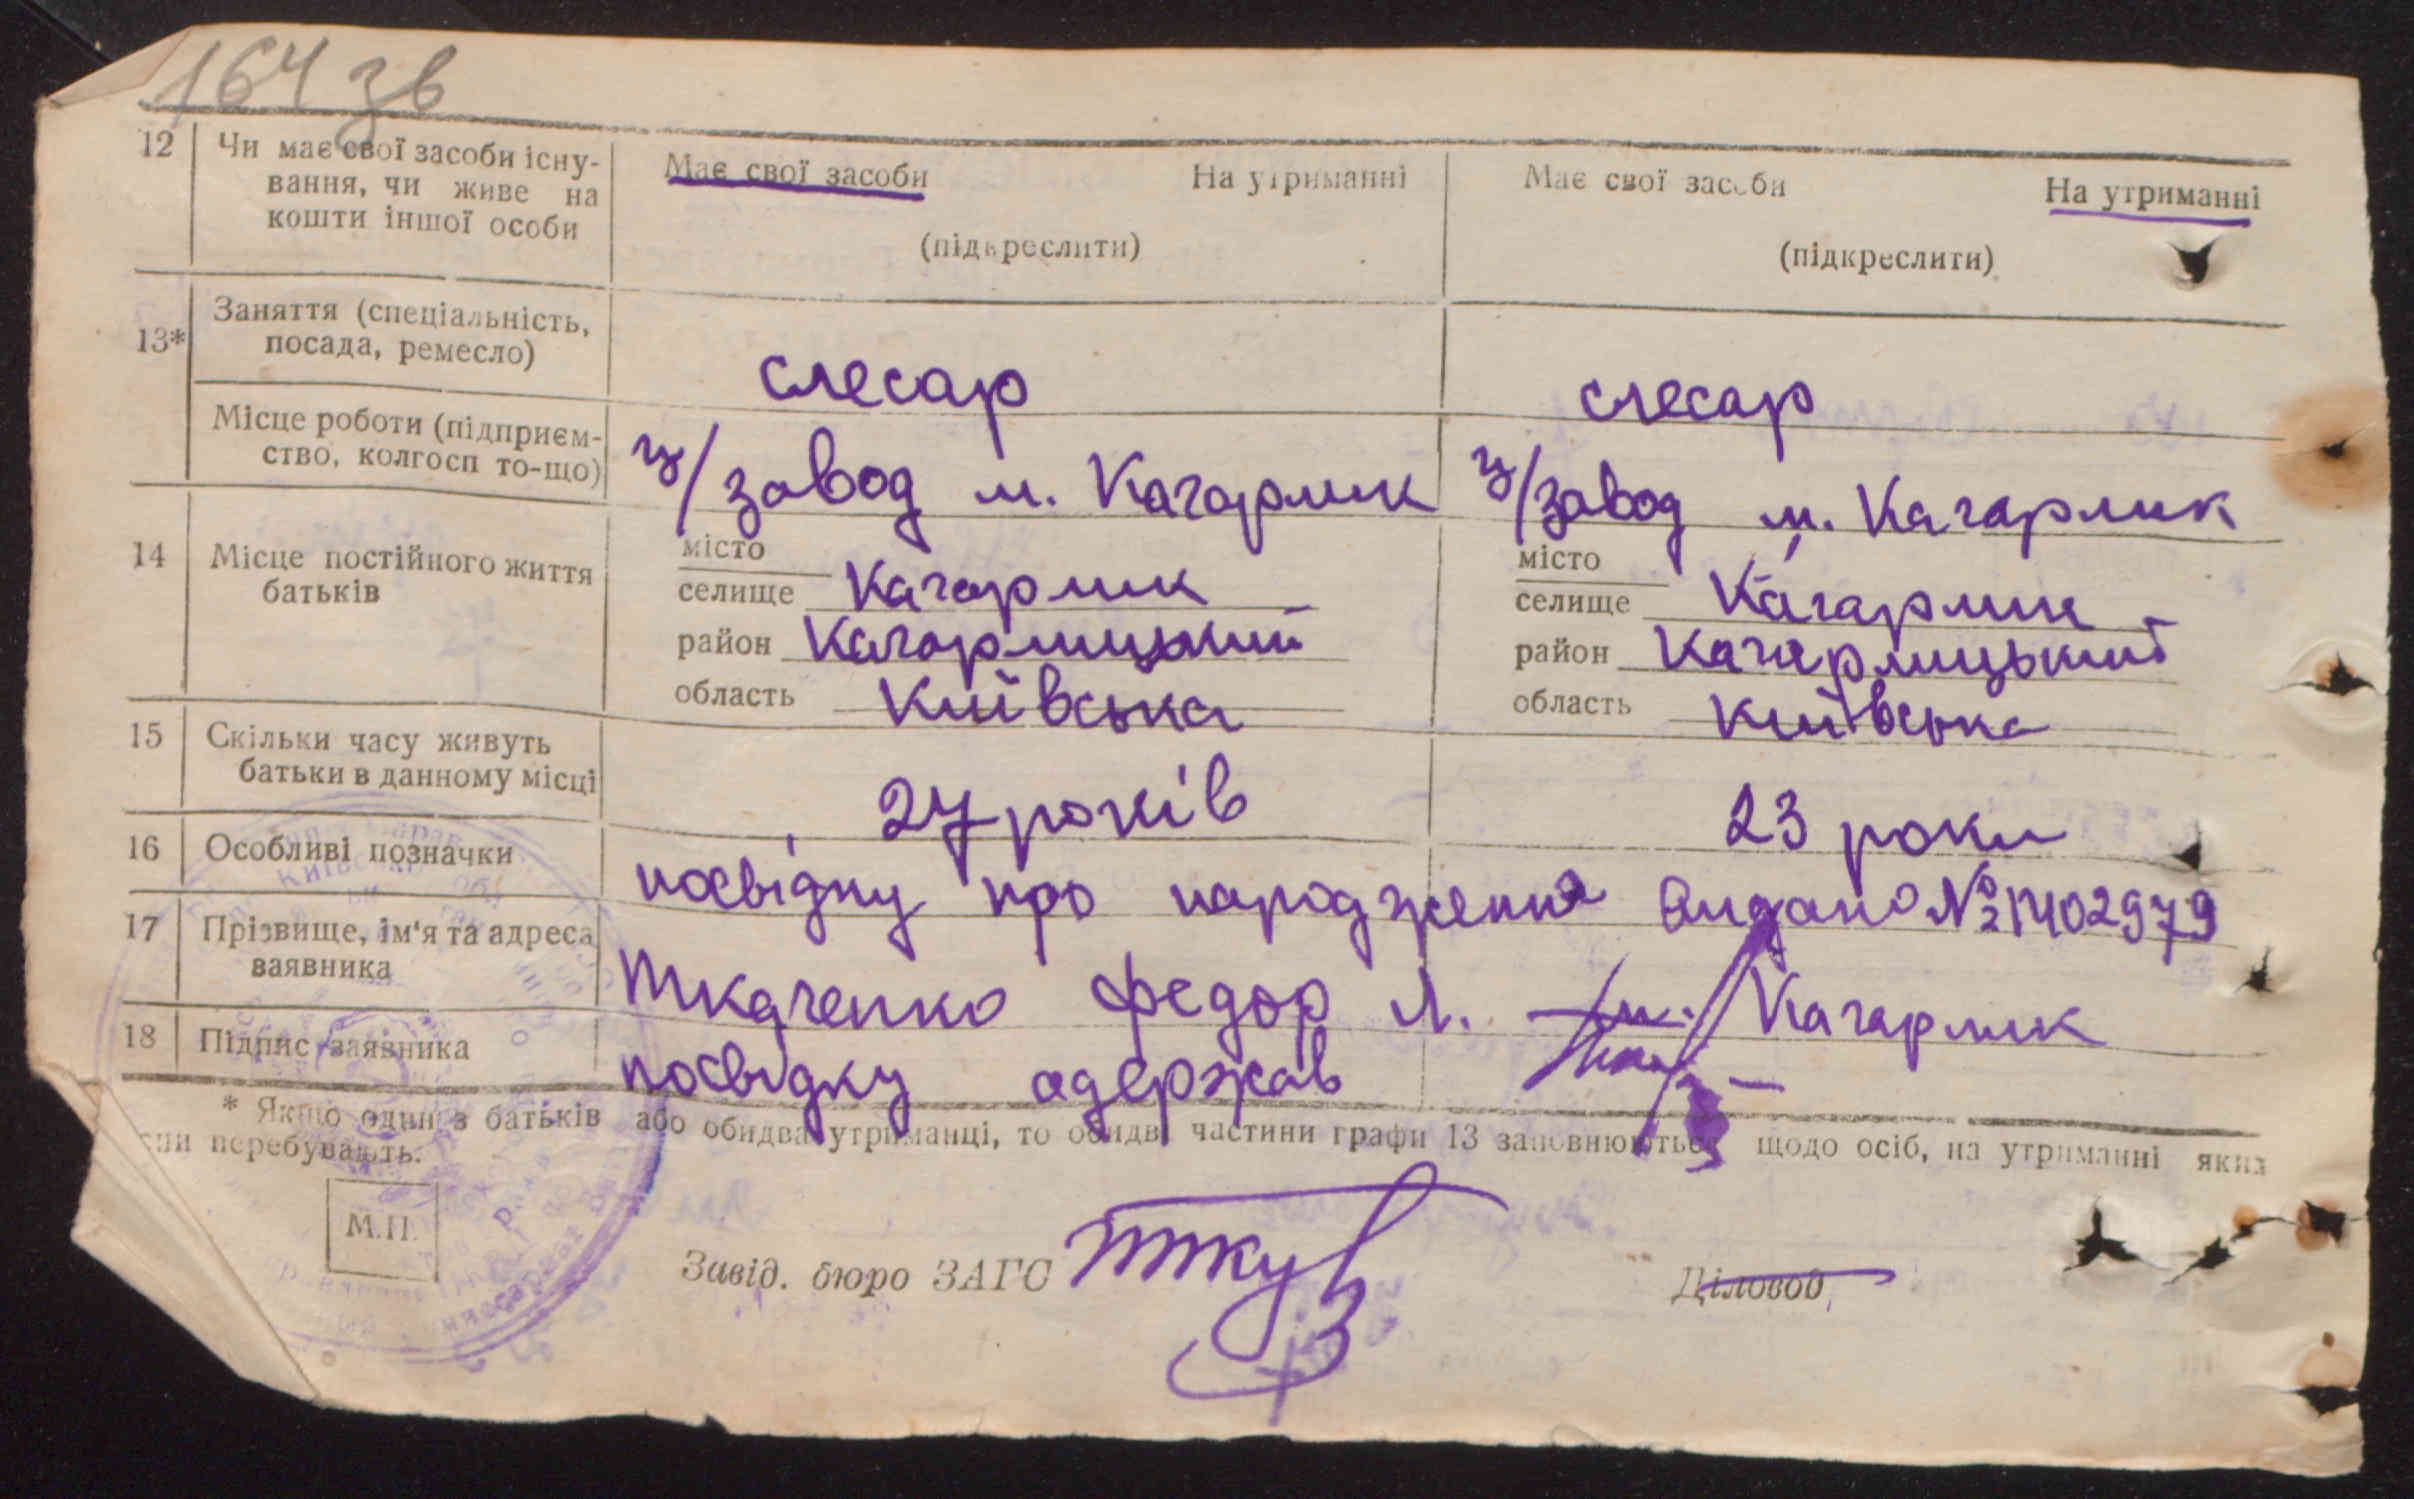 164 зв
12 Чи має свої засоби існу-
вання, чи живе на
кошти іншої особи
Має свої засоби На утриманні
(підкреслити)
Має свої засоби На утриманні
(підкреслити)
13* Заняття (спеціальність,
посада, ремесло)
слесар
слесар
Місце роботи (підприєм-
ство, колгосп то-що)
ц/завод м. Кагарлик
ц/завод м. Кагарлик
14 Місце постійного життя
батьків
місто
селище Кагарлик
район Кагарлицький
область Київська
місто
селище Кагарлик
район Кагарлицький
область Київська
15 Скільки часу живуть
батьки в данному місці
27 років
23 роки
16 Особливі позначки
посвідку про народження видано №
17 Прізвище, ім'я та адреса
заявника
Ткаченко Федор Л. м. Кагарлик
18 Підпис заявника
посвідку одержав
* Якщо один з батьків або обидва утриманці, то обидві частини графи 13 заповнюються щодо осіб, на утриманні яких
перебувають.
М.П.
Завід. бюро ЗАГС
Діловод